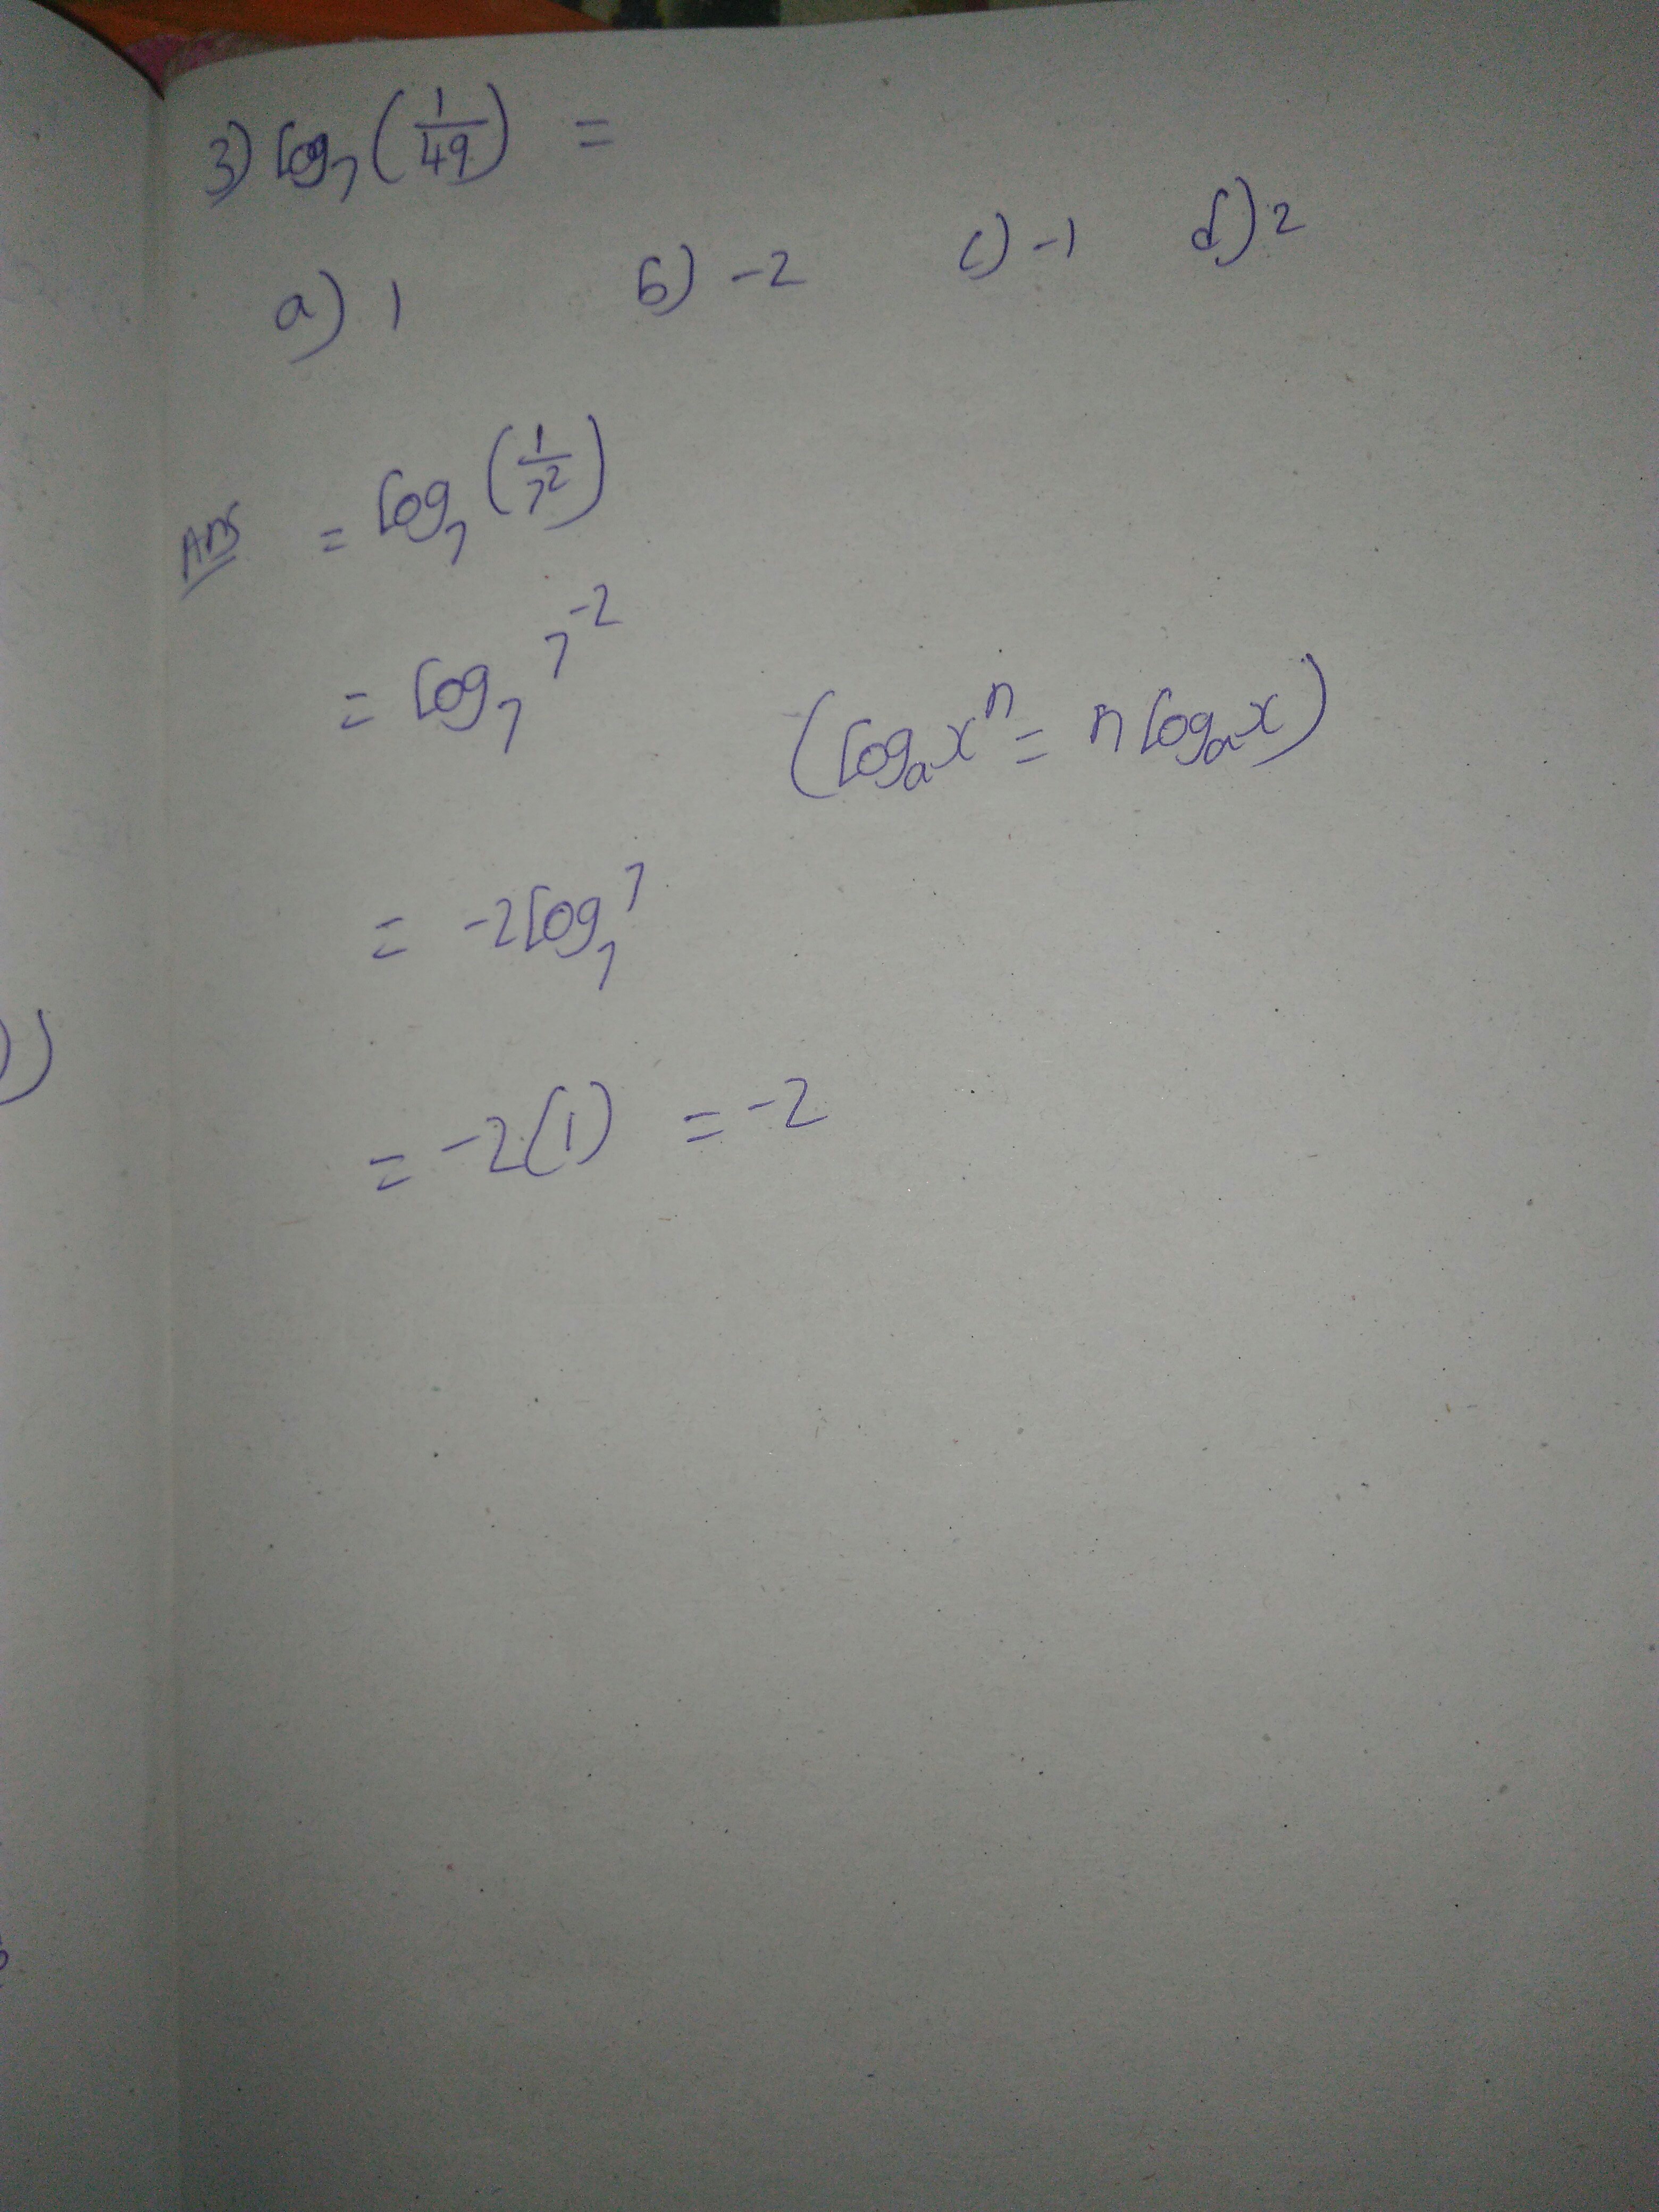 3) log₇(1/49) =
a) 1 b) -2 c) -1 d) 2
Ans = log₇(1/7²)
= log₇ 7⁻²
(logₐxⁿ = n logₐx)
= -2log₇7
= -2(1) = -2